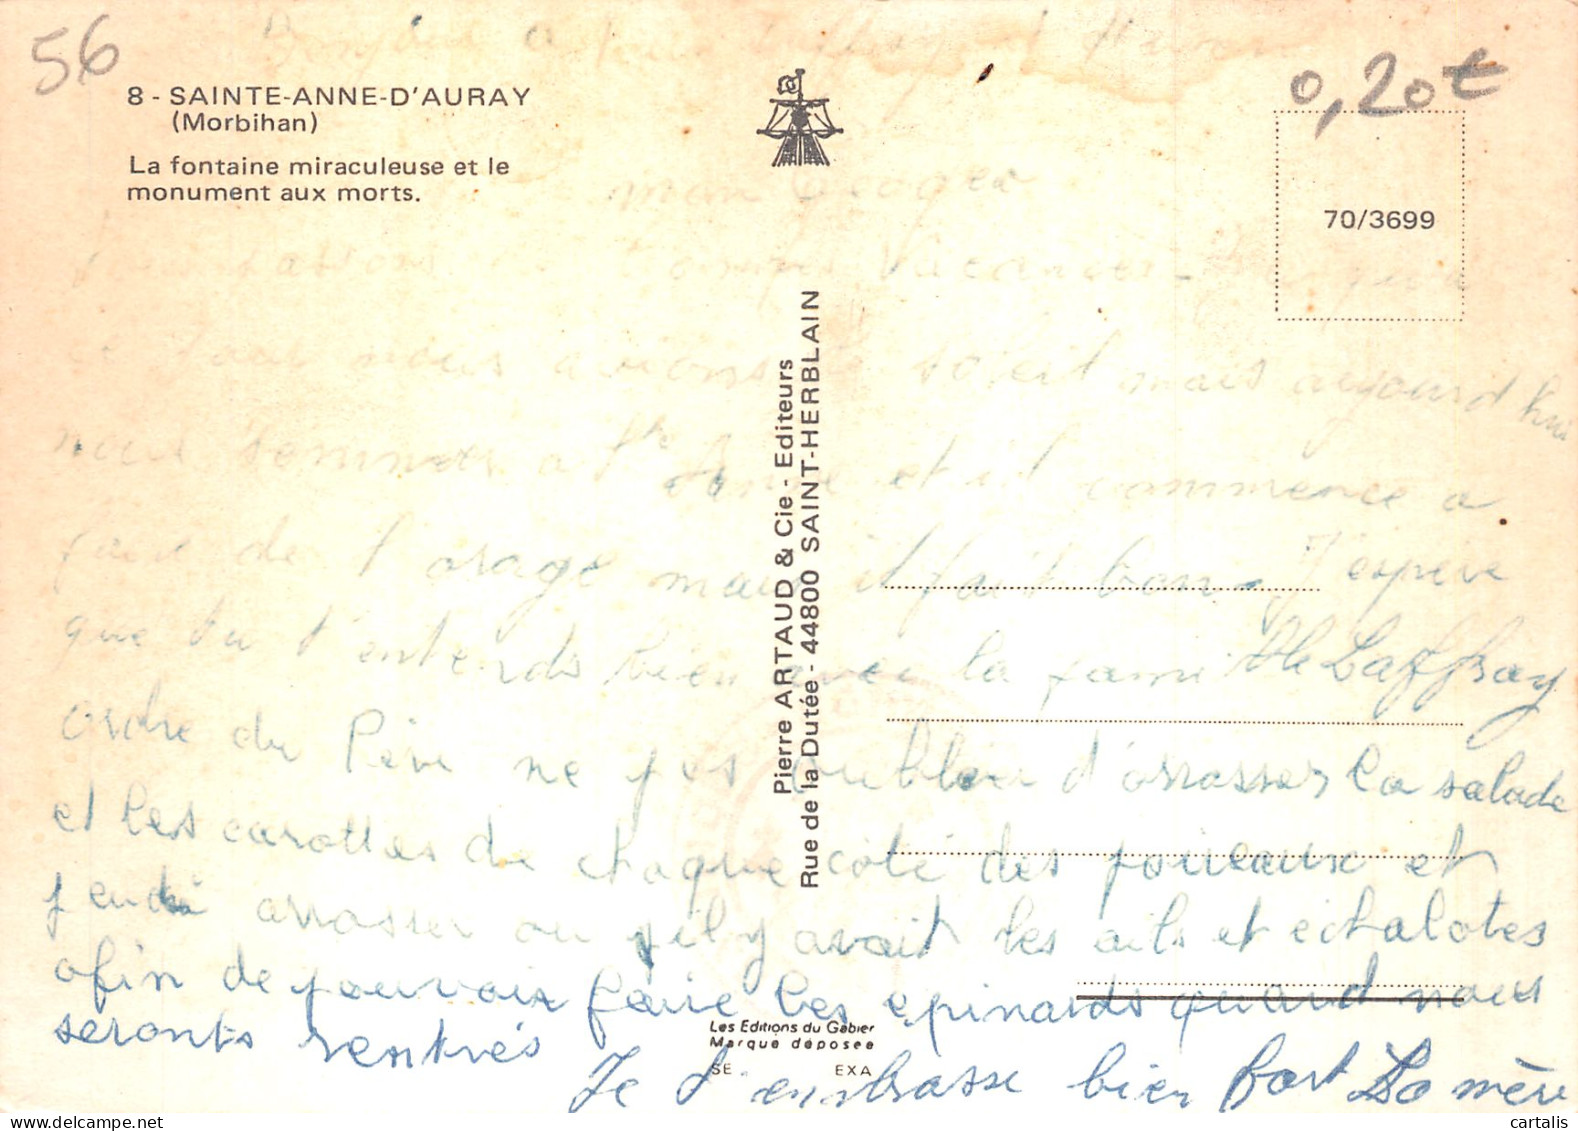 56
0,20€
8 - SAINTE-ANNE-D'AURAY
(Morbihan)
La fontaine miraculeuse et le
monument aux morts.
70/3699
Pierre ARTAUD & Cie - Editeurs
Rue de la Dutée - 44800 SAINT-HERBLAIN
Bonjour a
mon
passons vacances
nous avions soleil mais aujourd hui
nous sommes a Ste Anne et il commence a
faire de l orage mais il fait bon - J'espère
que tu t'entends bien avec la famille Laffray
ordre du Père ne pas oublier d'arrasser la salade
et les carottes de chaque côté des poireaux et
arrasser ou s il y avait les ails et echalotes
afin de pouvoir faire les epinards quand nous
seronts rentrés
Je t'embrasse bien fort La mère
Les Editions du Gabier
Marque déposée
SE EXA